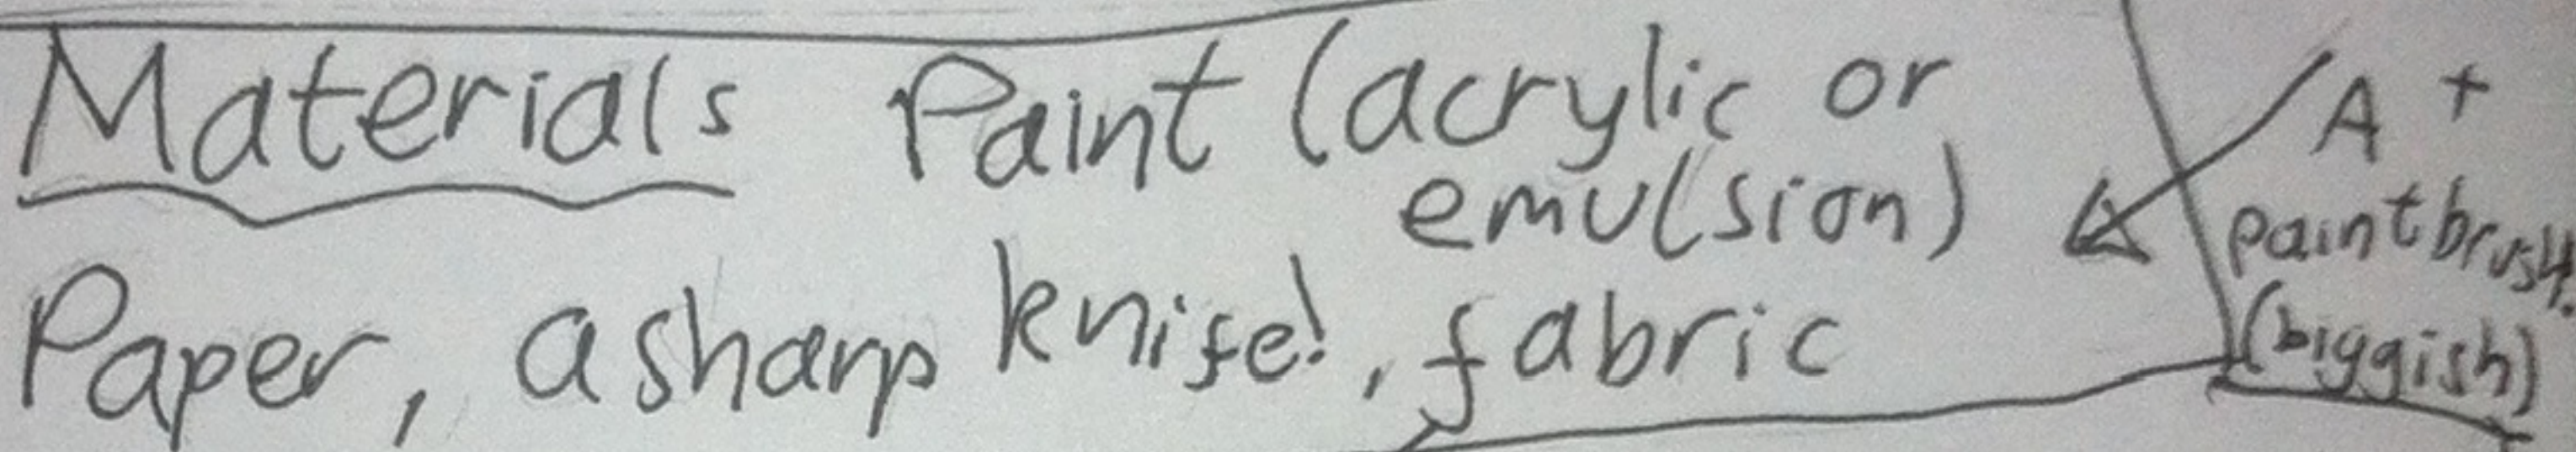 Materials Paint (acrylic or
emulsion)
Paper, a sharp knife!, fabric
A +
paintbrush.
(biggish)